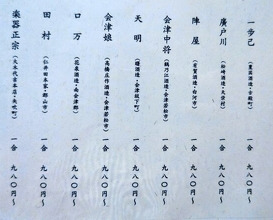 一歩己 (豊國酒造・古殿町) 一合 九八〇円〜
廣戸川 (松崎酒造・天栄村) 一合 九八〇円〜
陣屋 (有賀酒造・白河市) 一合 九八〇円〜
会津中将 (鶴乃江酒造・会津若松市) 一合 九八〇円〜
天明 (曙酒造・会津坂下町) 一合 九八〇円〜
会津娘 (高橋庄作酒造・会津若松市) 一合 九八〇円〜
ロ万 (花泉酒造・南会津郡) 一合 九八〇円〜
田村 (仁井田本家・郡山市) 一合 九八〇円〜
楽器正宗 (大木代吉本店・矢吹町) 一合 九八〇円〜